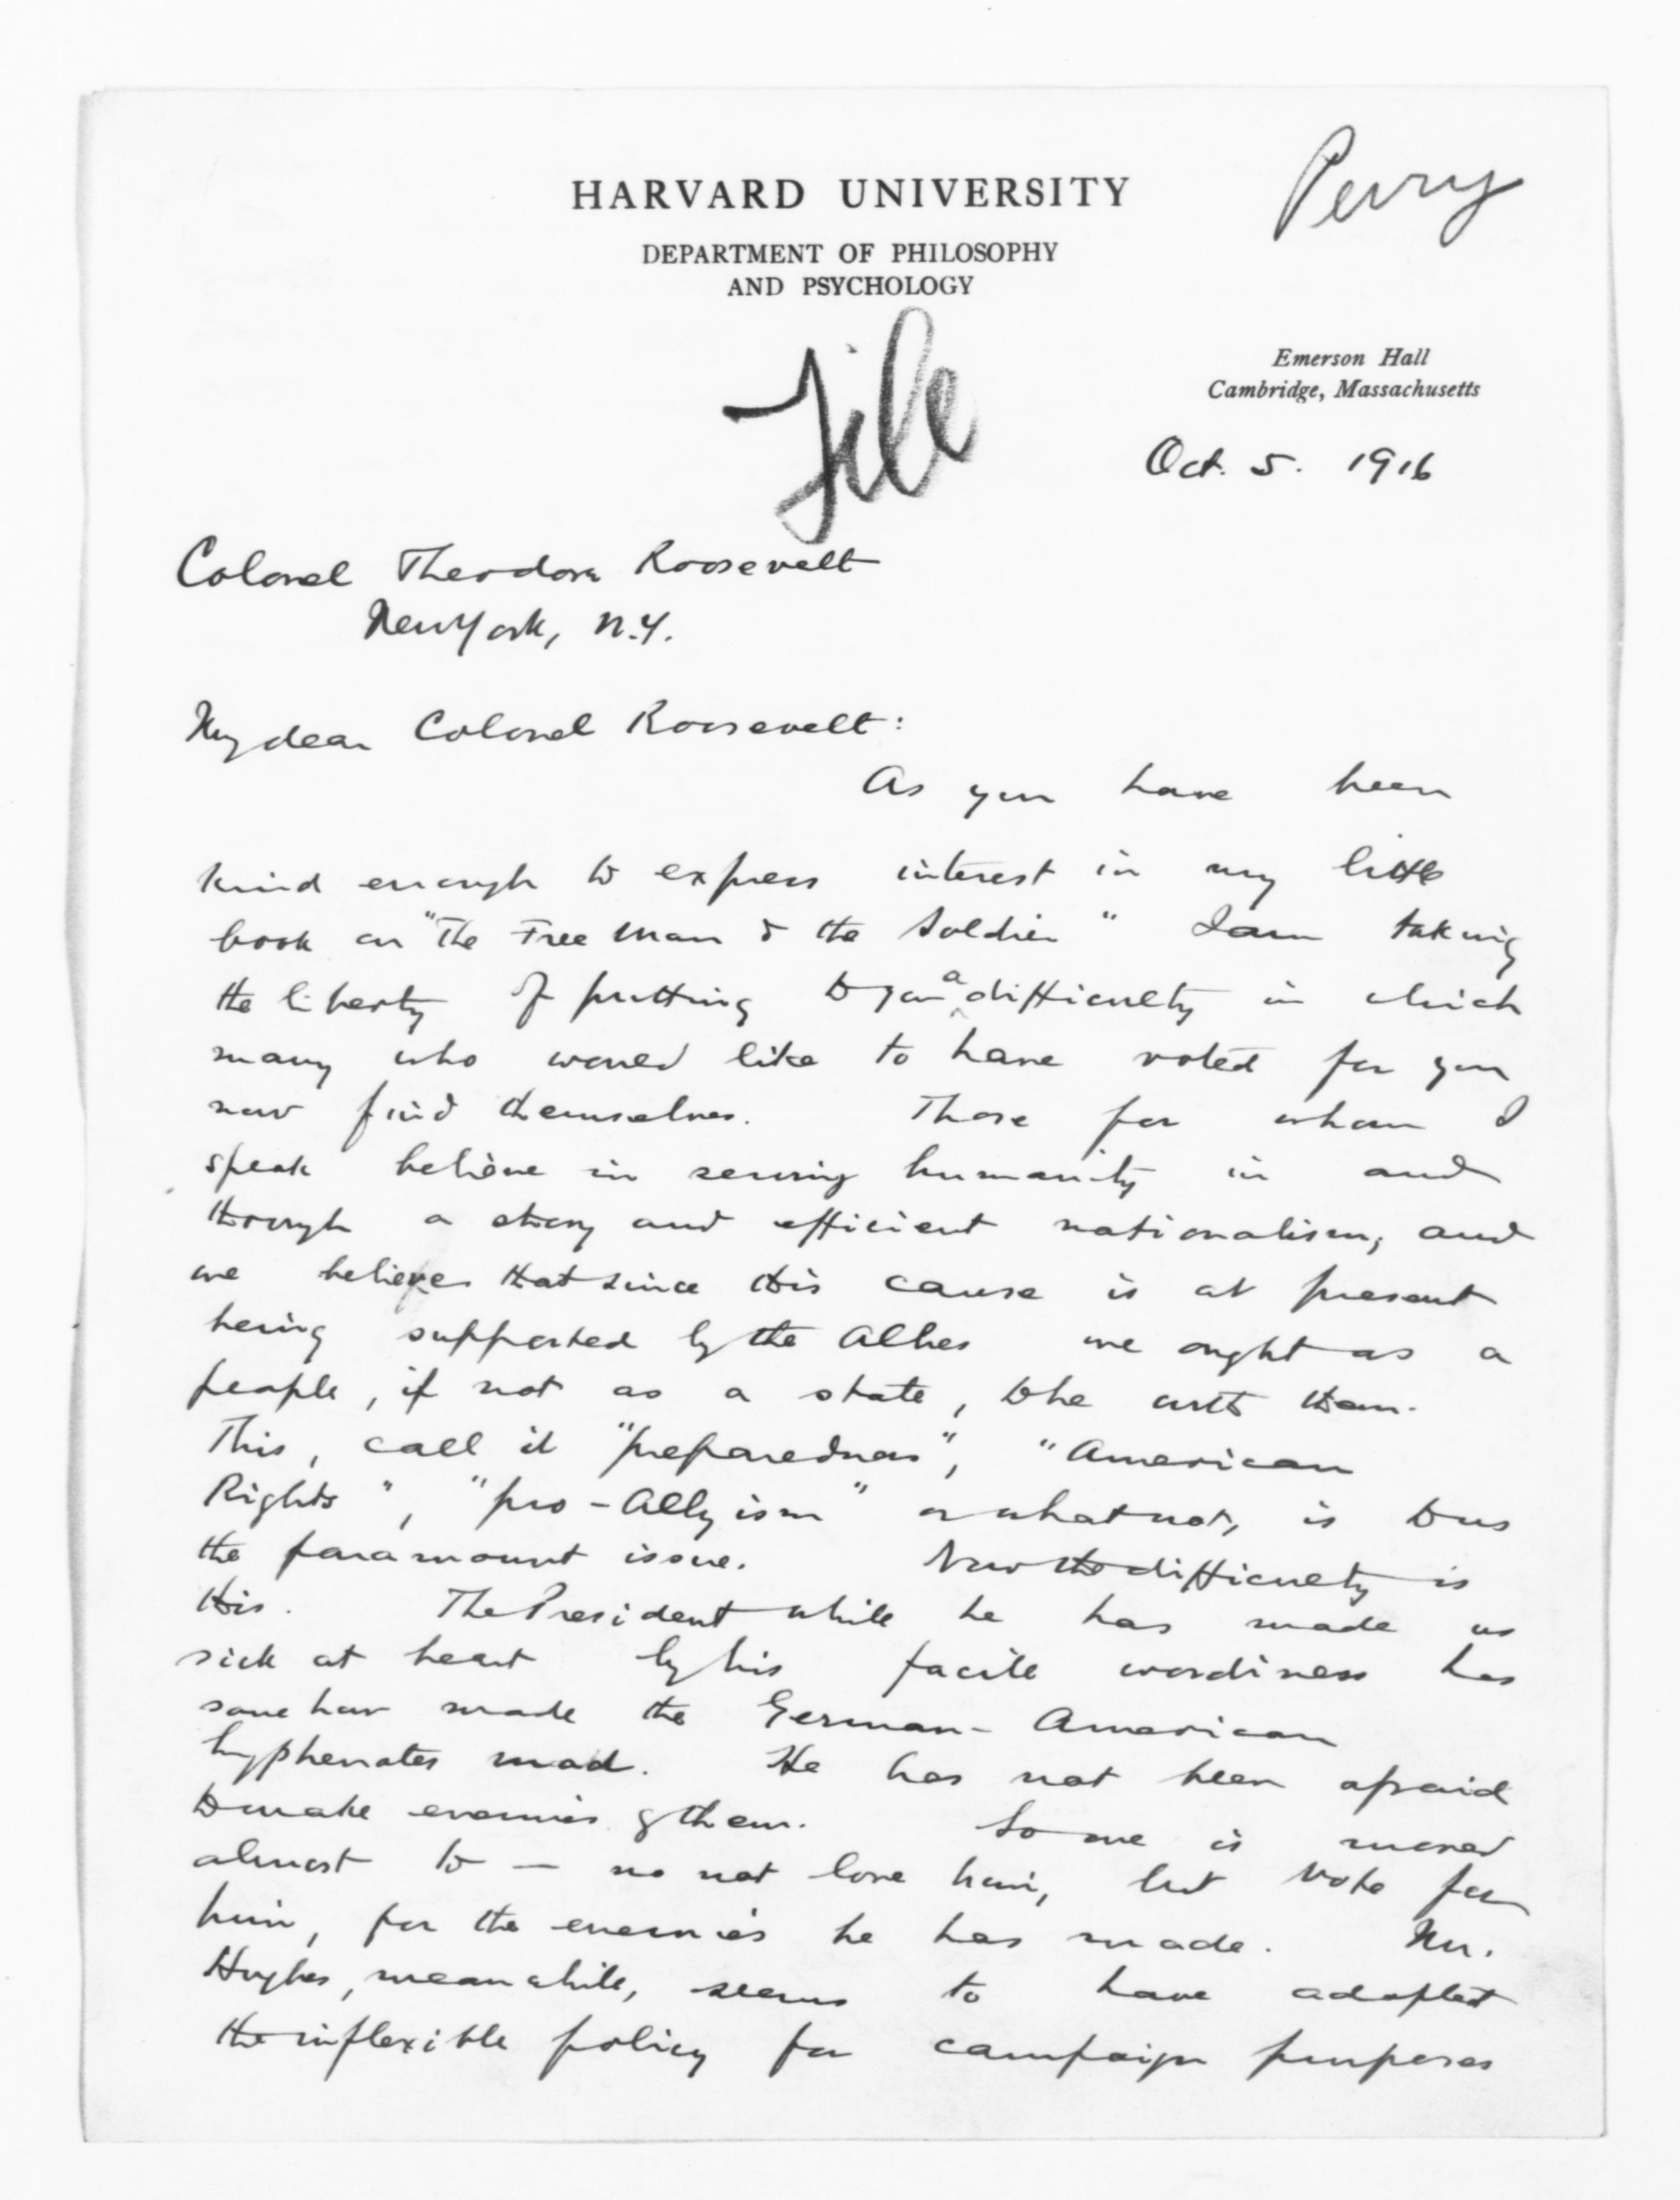 Perry
HARVARD UNIVERSITY
DEPARTMENT OF PHILOSOPHY
AND PSYCHOLOGY
File
Emerson Hall
Cambridge, Massachusetts
Oct. 5. 1916
Colonel Theodore Roosevelt
New York, N.Y.
My dear Colonel Roosevelt:
As you have been
kind enough to express interest in my little
book on "The Free Man & the Soldier" I am taking
the liberty of putting to you a difficulty in which
many who would like to have voted for you
now find themselves. Those for whom I
speak believe in serving humanity in and
through a strong and efficient nationalism; and
we believe that since this cause is at present
being supported by the Allies we ought as a
people, if not as a state, to be with them.
This, call it "preparedness", "American
Rights", "pro-Allyism" or what not, is to us
the paramount issue. Now the difficulty is
this. The President while he has made us
sick at heart by his facile wordiness has
somehow made the German-American
hyphenates mad. He has not been afraid
to make enemies of them. So one is moved
almost to — no not love him, but vote for
him, for the enemies he has made. Mr.
Hughes, meanwhile, seems to have adopted
the inflexible policy for campaign purposes